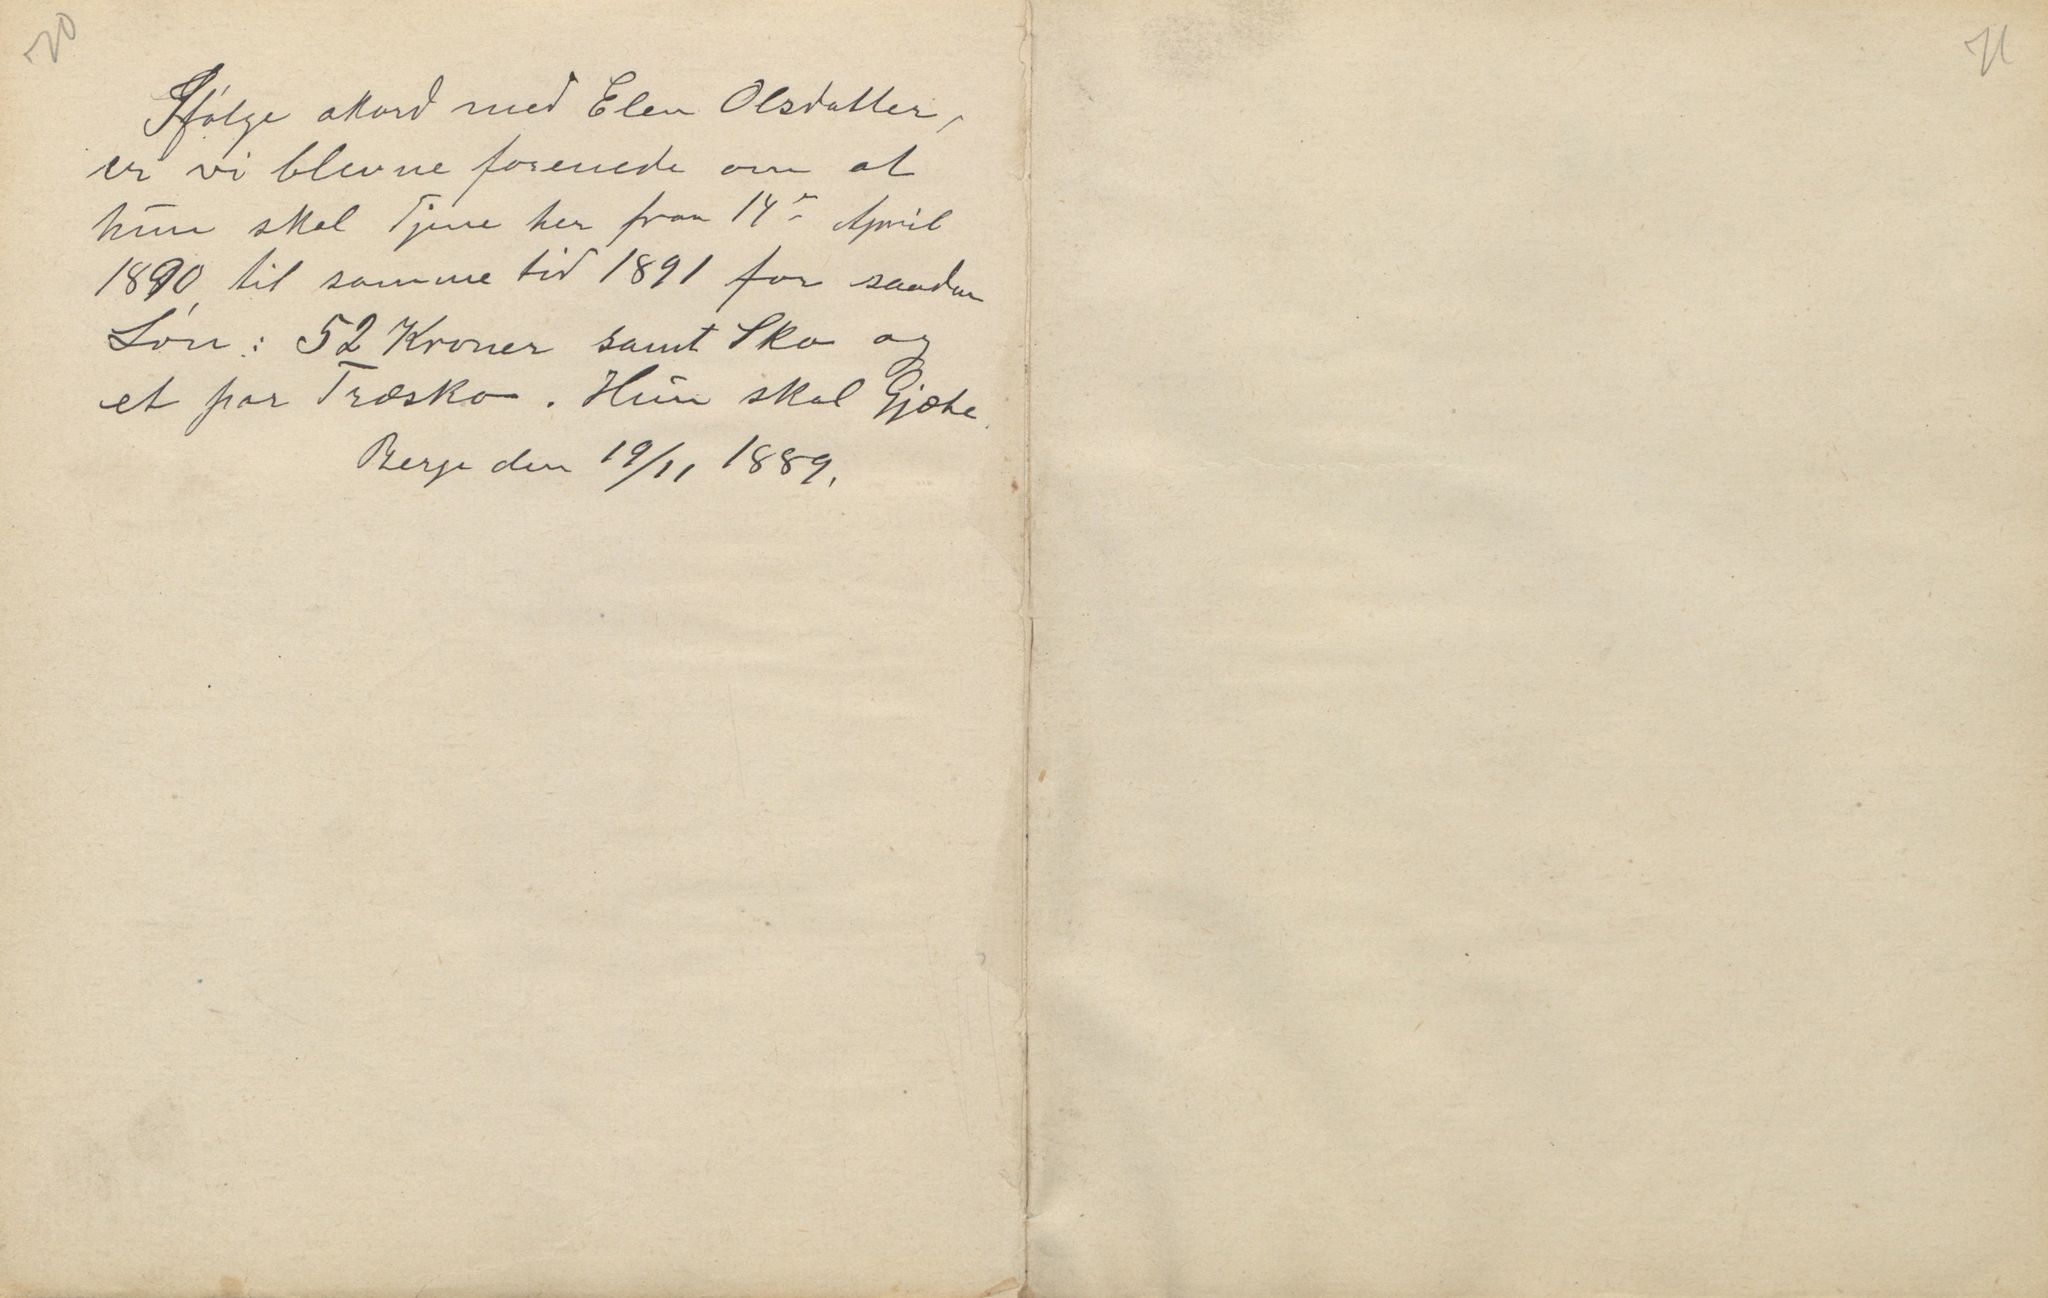 70
71
Ifølge akord med Elen Olsdatter,
er vi blevne forenede om at
hun skal Tjene her fraa 14de April
1890, til samme tid 1891 for saadan
Løn: 52 Kroner samt Sko og
et par Træsko. Hun skal Gjæte.
Berge den 19/11 1889.